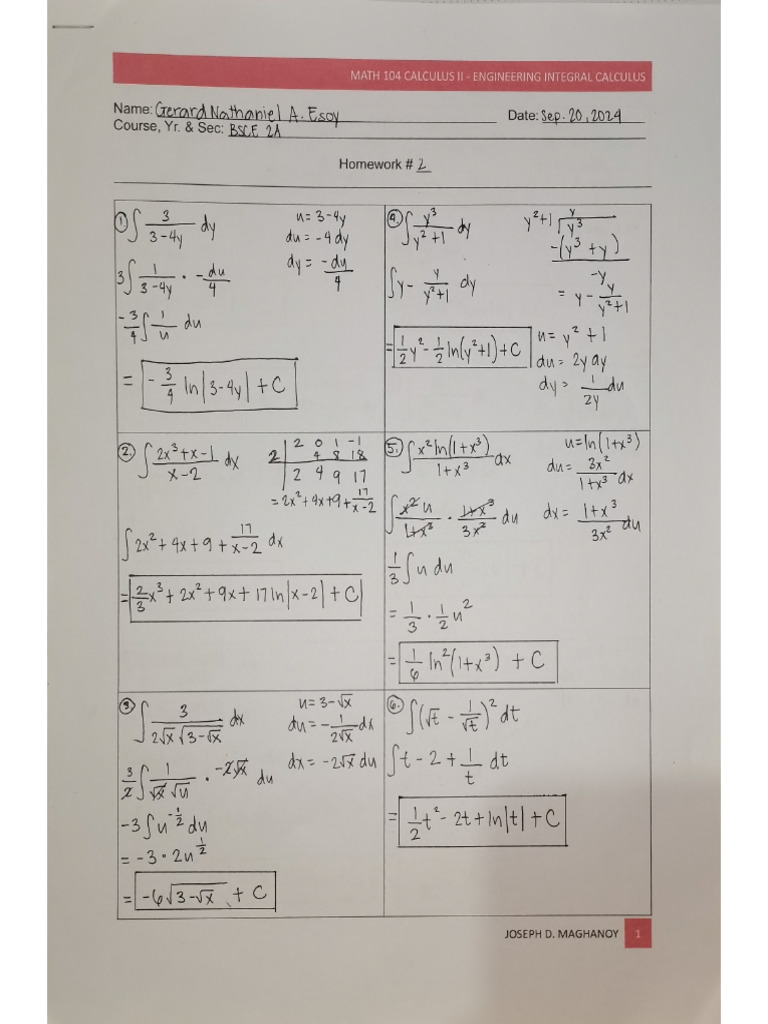 MATH 104 CALCULUS II - ENGINEERING INTEGRAL CALCULUS
Name: Gerard Nathaniel A. Esoy Date: Sep. 20, 2024
Course, Yr. & Sec: BSCE 2A
Homework # 2
① ∫ 3/(3-4y) dy u = 3-4y
du = -4 dy
dy = -du/4
3∫ 1/(3-4y) · -du/4
-3/4 ∫ 1/u du
= -3/4 ln|3-4y| + C
4. ∫ y³/(y²+1) dy y²+1 y y³
-(y³ + y)
-y
∫ y - y/(y²+1) dy = y - y/(y²+1)
u = y² + 1
du = 2y dy
dy = 1/2y du
= 1/2 y² - 1/2 ln(y²+1) + C
2. ∫ (2x³+x-1)/(x-2) dx 2 | 2 0 1 -1
4 8 18
2 4 9 17
= 2x²+4x+9+ 17/(x-2)
∫ 2x² + 4x + 9 + 17/(x-2) dx
= 2/3 x³ + 2x² + 9x + 17 ln|x-2| + C
5. ∫ x² ln(1+x³)/(1+x³) dx u = ln(1+x³)
du = 3x²/(1+x³) dx
∫ x² u/(1+x³) · (1+x³)/3x² du dx = (1+x³)/3x² du
1/3 ∫ u du
= 1/3 · 1/2 u²
= 1/6 ln²(1+x³) + C
③ ∫ 3/(2√x √(3-√x)) dx u = 3-√x
du = -1/(2√x) dx
dx = -2√x du
3/2 ∫ 1/(√x √u) · -2√x du
-3 ∫ u^(-1/2) du
= -3 · 2u^(1/2)
= -6√(3-√x) + C
6. ∫ (√t - 1/√t)² dt
∫ t - 2 + 1/t dt
= 1/2 t² - 2t + ln|t| + C
JOSEPH D. MAGHANOY 1